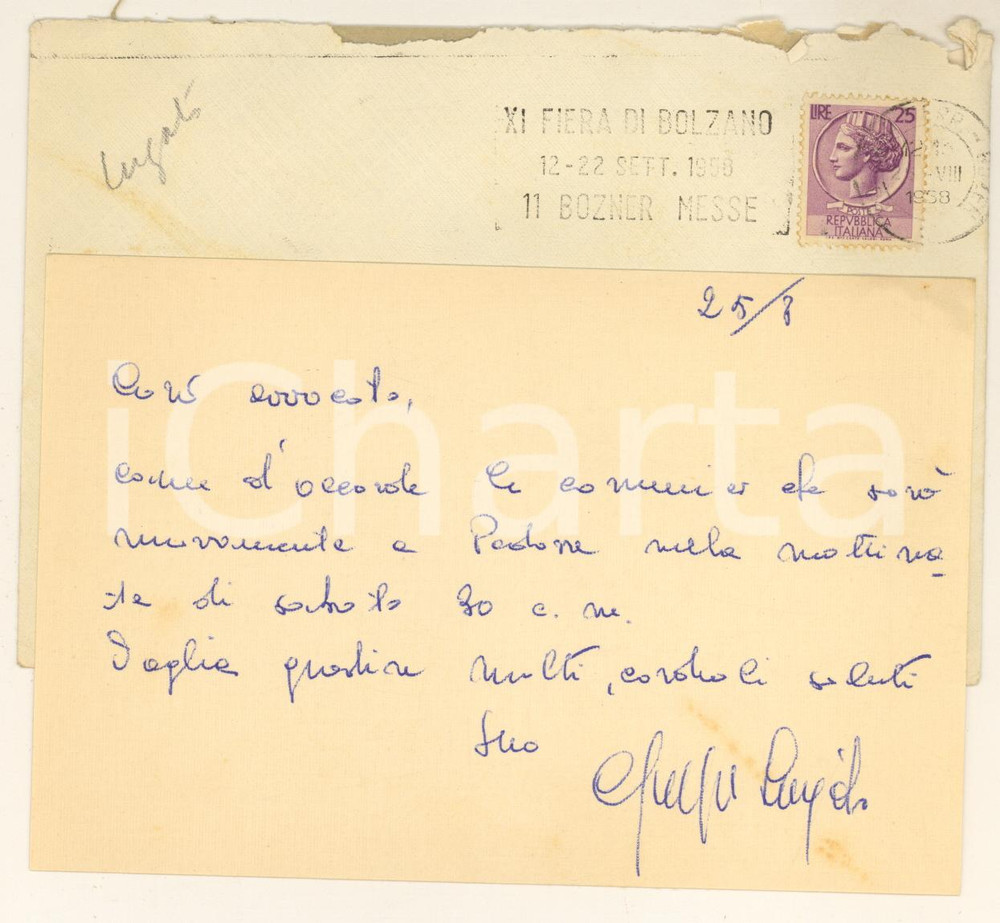 XI FIERA DI BOLZANO
12-22 SETT. 1958
11 BOZNER MESSE
LIRE 25
POSTE
REPVBBLICA
ITALIANA
VIII
1958
25/8
Caro avvocato,
come d'accordo Le comunico che sarò
nuovamente a Padova nella mattina-
ta di sabato 30 c. m.
Voglia gradire molti, cordiali saluti
Suo
iCharta